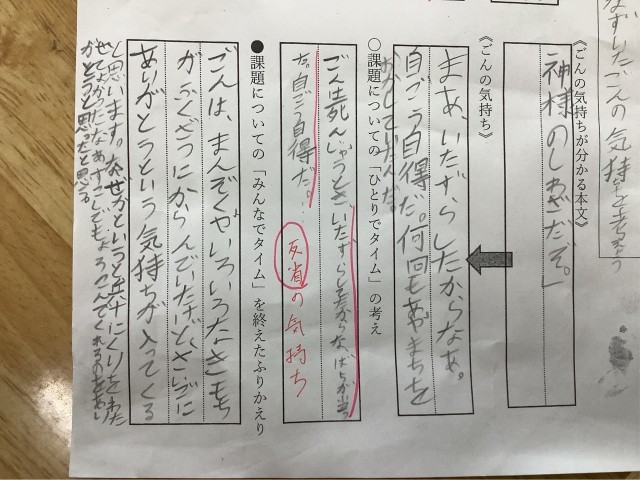 なずいたごんの気持ちを考えう
《ごんの気持ちが分かる本文》
神様のしわざだぞ。」
《ごんの気持ち》
まあ、いたずらしたからなあ。
自ごう自得だ。何回もあやまちを
おかしてきたんだ。
○課題についての「ひとりでタイム」の考え
ごんは死んじゃうとき、いたずらしてたからな、ばちが当っ
た。自ごう自得だ。
反省の気持ち
●課題についての「みんなでタイム」を終えたふりかえり
ごんは、まんぞくやいろいろなきもち
がふくざつにからんでいたけどさいごに
ありがとうという気持ちが入ってくる
と思います。なぜかというと兵十にくりをわた
せてよかったなあすこしでもよろこんでくれる
がとうと思ったと思う